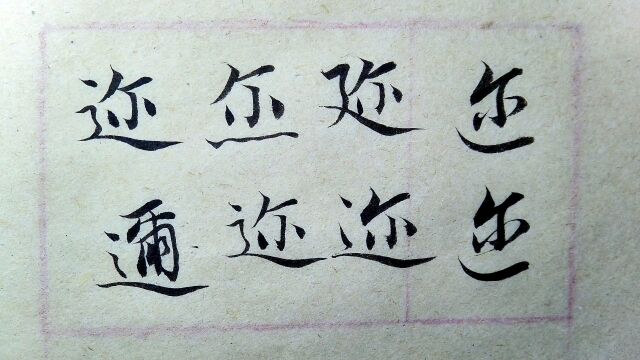 迩 迩 迩 迩
邇 迩 迩 迩